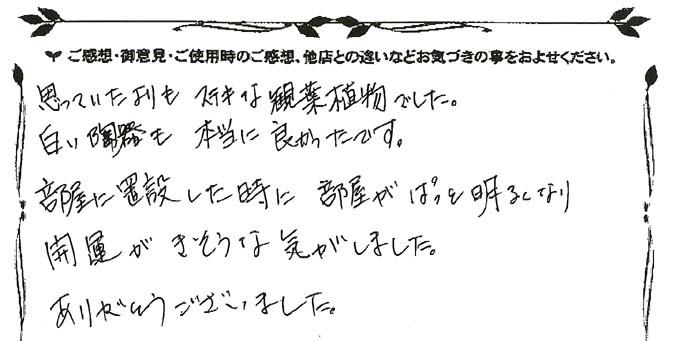 ご感想・御意見・ご使用時のご感想、他店との違いなどお気づきの事をおよせください。
思っていたよりも ステキな 観葉植物でした。
白い陶器も 本当に良かったです。
部屋に置設した時に 部屋が ぱっと明るくなり
開運が きそうな 気がしました。
ありがとうございました。